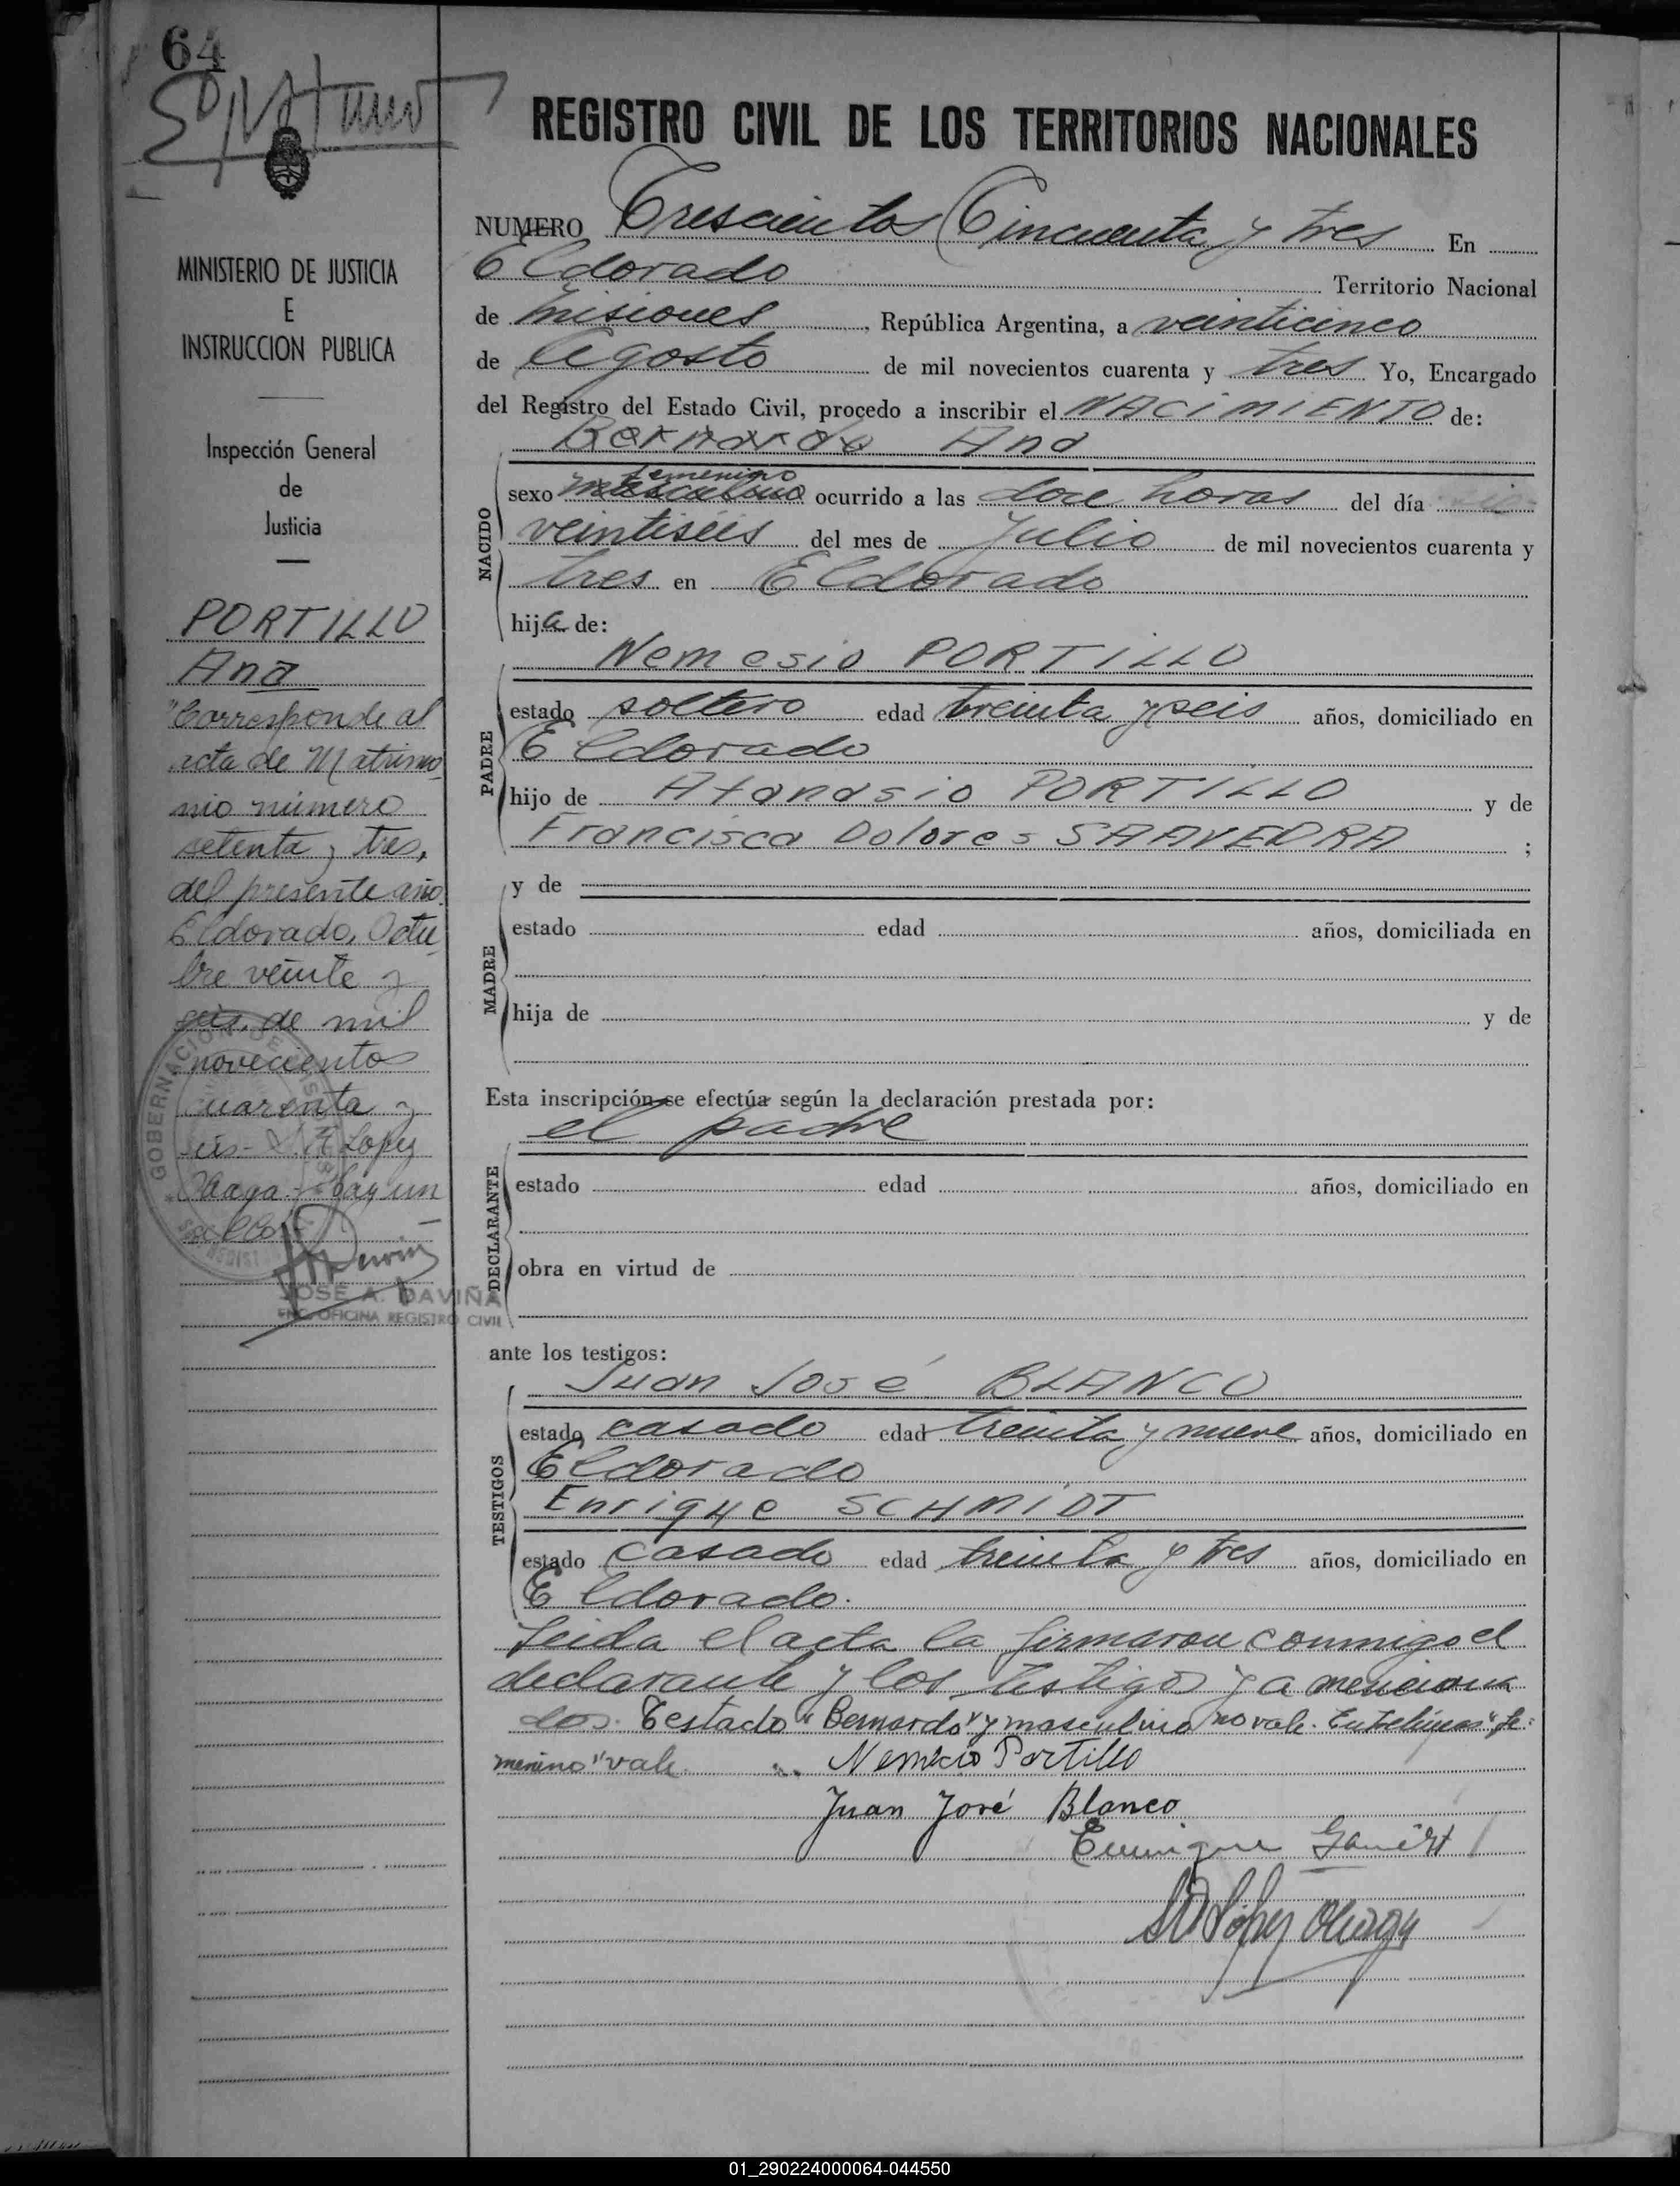 64
REGISTRO CIVIL DE LOS TERRITORIOS NACIONALES
NUMERO Trescientos Cincuenta y tres En
Eldorado Territorio Nacional
de Misiones, República Argentina, a veinticinco
de Agosto de mil novecientos cuarenta y tres Yo, Encargado
del Registro del Estado Civil, procedo a inscribir el NACIMIENTO de:
Bernardo Ana
femenino
sexo masculino ocurrido a las doce horas del día
veintiséis del mes de Julio de mil novecientos cuarenta y
tres en Eldorado
hija de:
NACIDO
Nemesio PORTILLO
estado soltero edad treinta y seis años, domiciliado en
Eldorado
hijo de Atanasio PORTILLO y de
Francisca Dolores SAAVEDRA ;
PADRE
y de
estado edad años, domiciliada en
hija de y de
MADRE
Esta inscripción se efectúa según la declaración prestada por:
el padre
estado edad años, domiciliado en
obra en virtud de
DECLARANTE
ante los testigos:
Juan José BLANCO
estado casado edad treinta y nueve años, domiciliado en
Eldorado
Enrique SCHMIDT
estado casado edad treinta y tres años, domiciliado en
Eldorado.
TESTIGOS
Leida el acta la firmaron conmigo el
declarante y los testigos ya menciona
dos. Testado "Bernardo" y masculino no vale. Entrelineas "fe-
menino" vale
Nemecio Portillo
Juan José Blanco
MINISTERIO DE JUSTICIA
E
INSTRUCCION PUBLICA
Inspección General
de
Justicia
PORTILLO
Ana
"Corresponde al
acta de Matrimo
nio número
setenta y tres,
del presente año.
Eldorado, Octu
bre veinte y
seis, de mil
novecientos
cuarenta y
seis- Lopez
Hay un
sello
JOSE A. DAVIÑA
ENC. OFICINA REGISTRO CIVIL
01_290224000064-044550